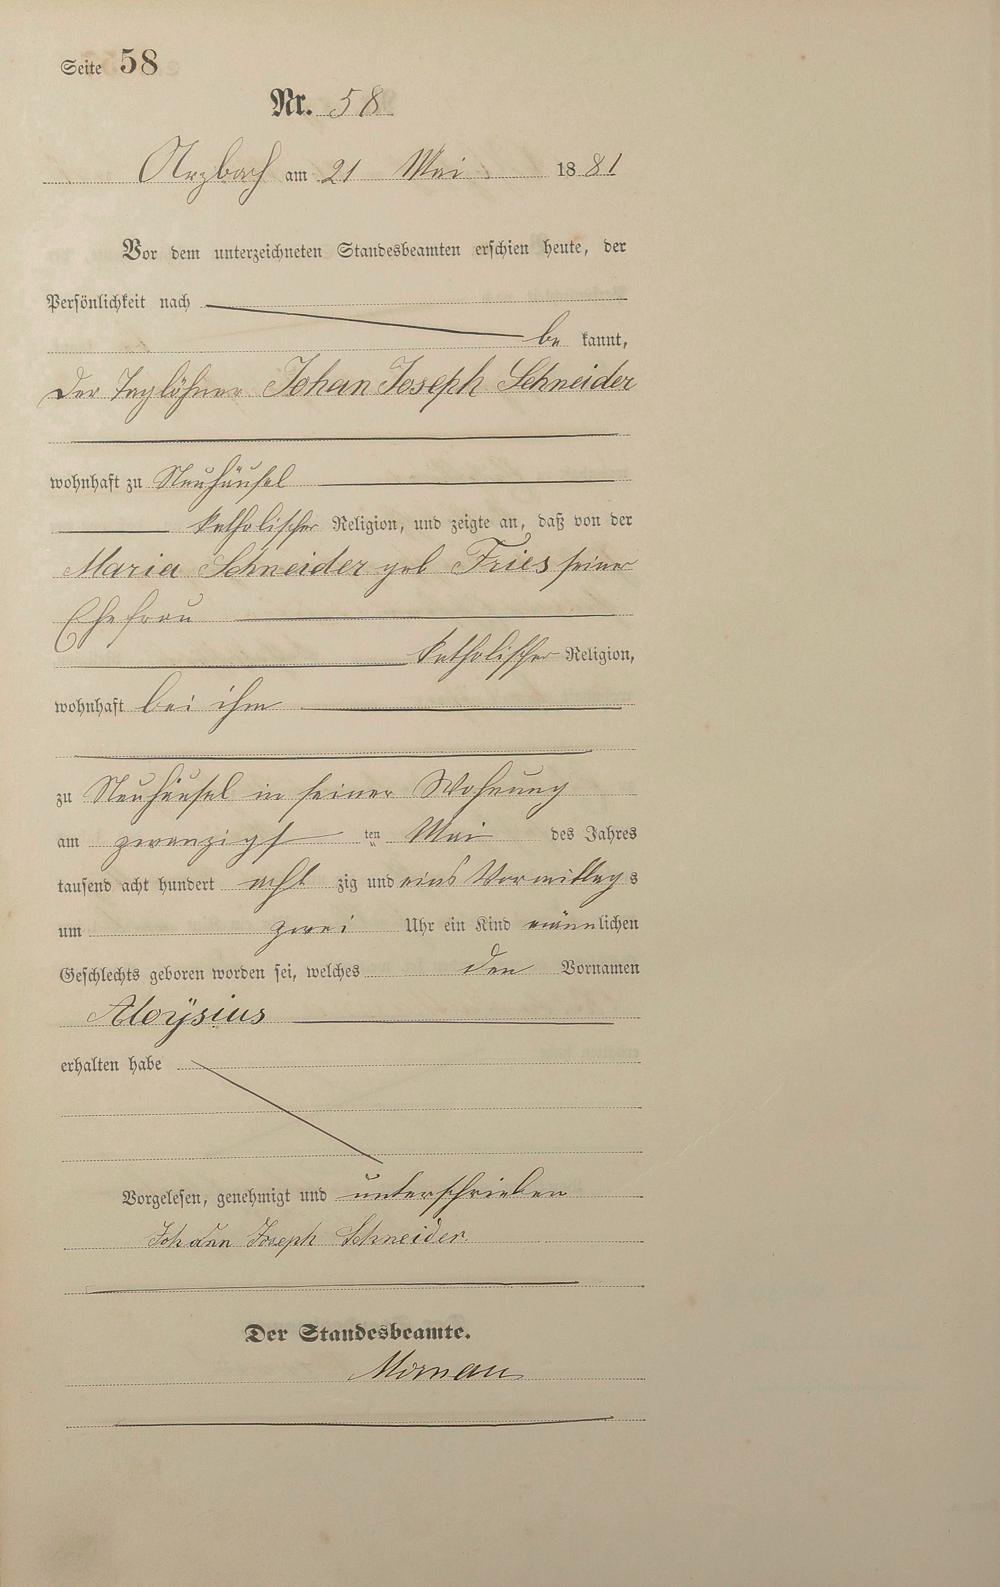 Seite 58
Nr. 58
Arzbach am 21 Mai 1881
Vor dem unterzeichneten Standesbeamten erschien heute, der
Persönlichkeit nach
be kannt,
der Taglöhner Johan Joseph Schneider
wohnhaft zu Neuhäusel
katholischer Religion, und zeigte an, daß von der
Maria Schneider geb Fries seiner
Ehefrau
katholischer Religion,
wohnhaft bei ihm
zu Neuhäusel in seiner Wohnung
am zwanzigs ten Mai des Jahres
tausend acht hundert acht zig und eins Vormittags
um zwei Uhr ein Kind männlichen
Geschlechts geboren worden sei, welches den Vornamen
Aloÿsius
erhalten habe
Vorgelesen, genehmigt und unterschrieben
Johann Joseph Schneider.
Der Standesbeamte.